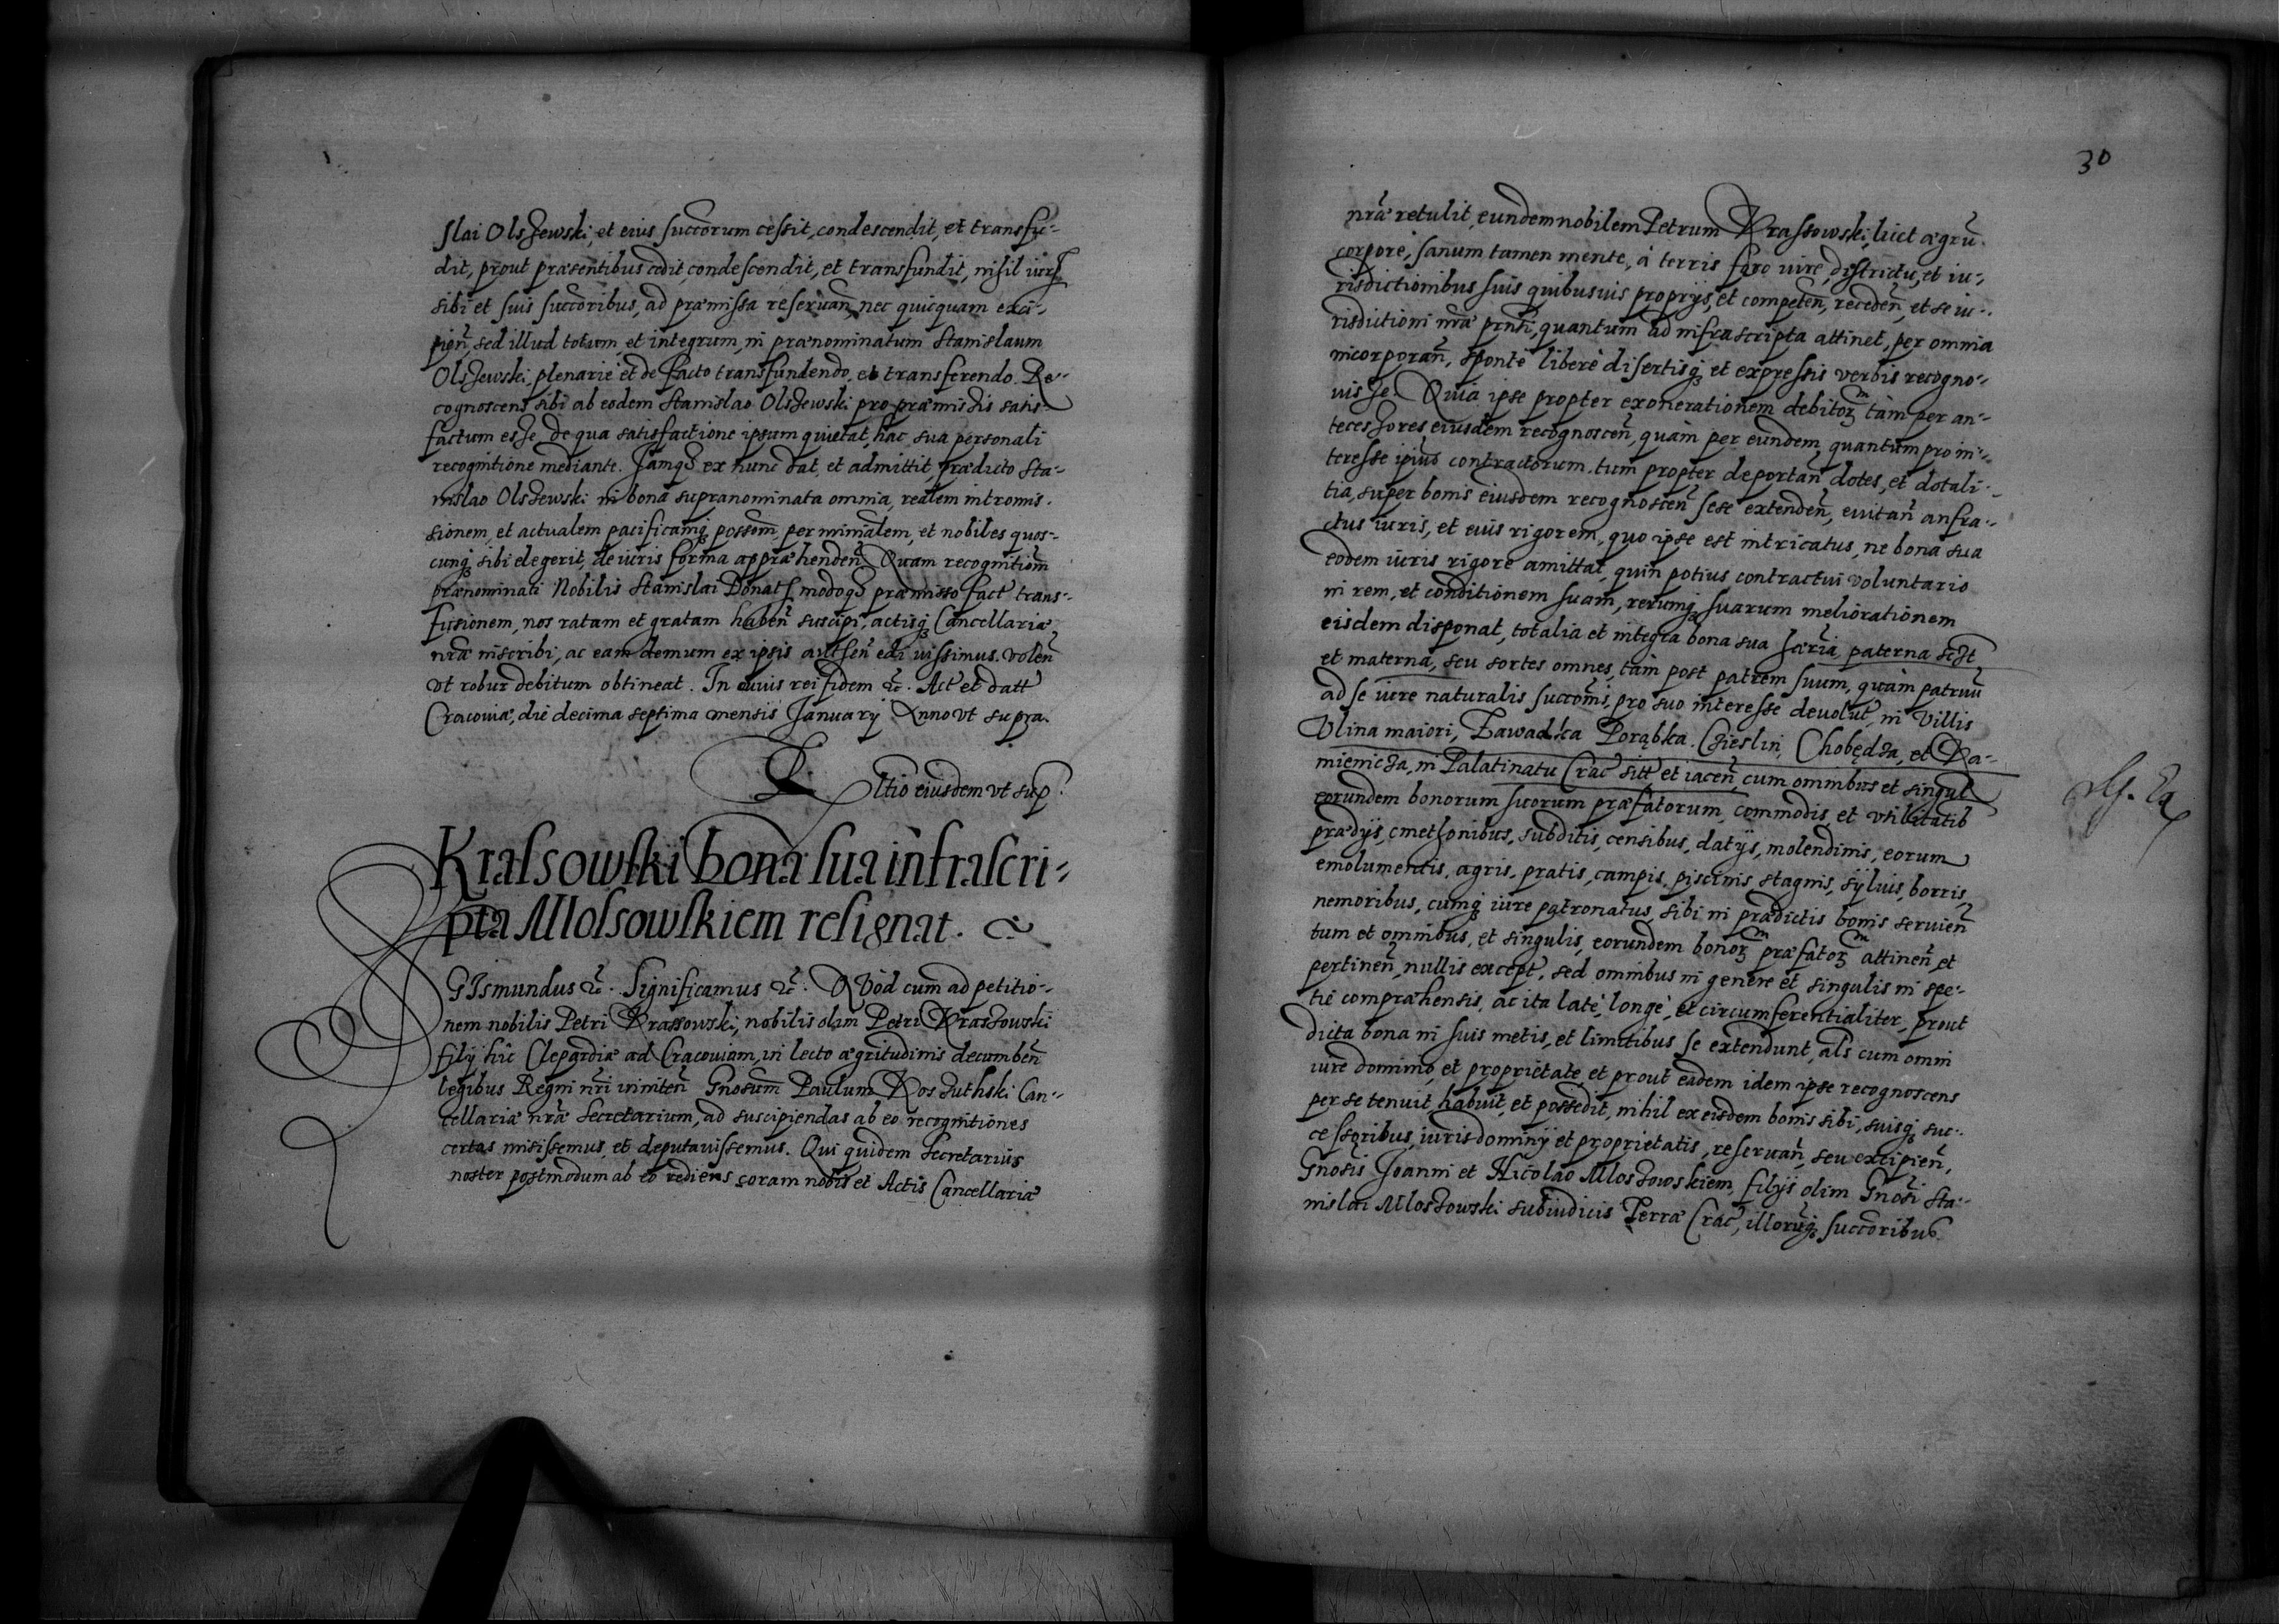 slai Olszewski, et eius succorum cessit, condescendit, et transfu-
dit, prout præsentibus cedit, condescendit, et transfundit, nihil iuris
sibi et suis succoribus, ad præmissa reservan, nec quicquam exci-
pien, sed illud totum et integrum, in prænominatum Stanislaum
Olszewski, plenarie et de facto transfundendo, et transferendo. Re-
cognoscens sibi ab eodem Stanislao Olszewski pro præmissis satis-
factum esse, de qua satisfactione ipsum quietat, hac sua personali
recognitione mediante. Iamqȝ ex nunc dat, et admittit, prædicto Sta-
nislao Olszewski in bona supranominata omnia, realem intromis-
sionem, et actualem pacificamqȝ possom, per minialem, et nobiles quos-
cunqȝ sibi elegerit, de iuris forma appræhenden. Quam recognitiom
prænominati Nobilis Stanislai Donat modoqȝ præmisso fact trans-
fusionem, nos ratam et gratam haben suscipi, actisqȝ Cancellariæ
nræ inscribi, ac eam demum ex ipsis authen edi iussimus. volen
vt robur debitum obtineat. In cuius rei fidem &c. Act et datt
Cracoviæ, die decima septima mensis January Anno vt supra.
Rltio eiusdem vt sup
Krassowski bona sua infrascri-
pta Mlossowskiem resignat.
SGIsmundus &c. Significamus &c. QVod cum ad petitio-
nem nobilis Petri Krassowski, nobilis olim Petri Kraszowski
filij hic Clepardiæ ad Cracoviam, in lecto ægritudinis decumben
legibus Regni nri initen Gnosum Paulum Koszuthski Can-
cellariæ nræ Secretarium, ad suscipiendas ab eo recognitiones
certas misissemus, et deputavissemus. Qui quidem Secretarius
noster postmodum ab eo rediens coram nobis et Actis Cancellariæ
30
nræ retulit, eundem nobilem Petrum Krassowski, licet ægru
corpore, sanum tamen mente, à terris foro iure, districtu, et iu-
risdictionibus suis quibusuis proprijs, et competen, receden, et se iu-
risdictioni nræ prnti, quantum ad infrascripta attinet, per omnia
incorporan, sponte libere disertisqȝ et expressis verbis recogno-
uisse. Quia ipse propter exonerationem debitorȝ tàm per an-
tecessores eiusdem recognoscen, quàm per eundem, quantum pro in-
teresse ipius contractorum. tum propter deportan dotes, et dotali-
tia, super bonis eiusdem recognoscen sese extenden, euitan anfra-
ctus iuris, et eius rigorem, quo ipse est intricatus, ne bona sua
eodem iuris rigore amittat, quin potius contractui voluntario
in rem, et conditionem suam, rerumqȝ suarum meliorationem
eisdem disponat, totalia et integra bona sua hæria, paterna sczt
et materna, seu sortes omnes, tàm post patrem suum, quàm patruu
ad se iure naturalis succonis, pro suo interesse devolut, in Villis
Vlina maiori, Zawadka Porąbka. Czieslin, Chobędza, et Ka-
mienicza, in Palatinatu Crac sitt et iacen, cum omnibus et singul
eorundem bonorum suorum præfatorum, commodis, et vtilitatib
prædijs, cmethonibus, subditis, censibus, datijs, molendinis, eorum
emolumentis, agris, pratis, campis, piscinis, stagnis, syluis, borris,
nemoribus, cumqȝ iure patronatus, sibi in prædictis bonis servien
tum et omnibus, et singulis, eorundem bonorȝ præfatorȝ attinen, et
pertinen, nullis except, sed omnibus in genere et singulis in spe-
tie compræhensis, ac ita late, longe, et circumferentialiter, prout
dicta bona in suis metis, et limitibus se extendunt, als cum omni
iure dominio, et proprietate, et prout eadem idem ipse recognoscens
per se tenuit habuit, et possedit, nihil ex eisdem bonis sibi, suisqȝ suc-
cessoribus, iuris dominij et proprietatis, reservan, seu excipien,
Gnosis Joanni et Nicolao Mloszowskiem, filijs olim Gnosi Sta-
nislai Mloszowski subiudicis Terræ Crac, illorumqȝ succoribus